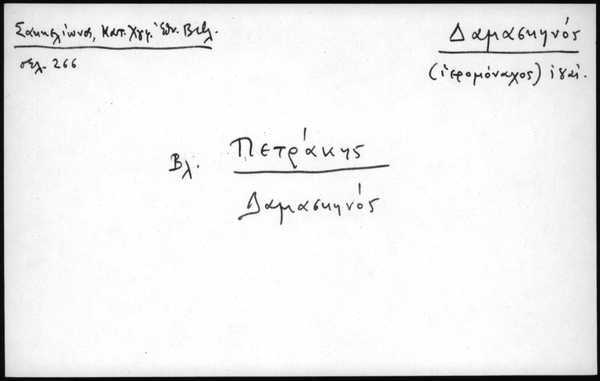 Σακκελίωνος, Κατ. Χγρ. Ἐθν. Βιβλ.
σελ. 266
Δαμασκηνός
(ἱερομόναχος)
Βλ. Πετράκης
Δαμασκηνός